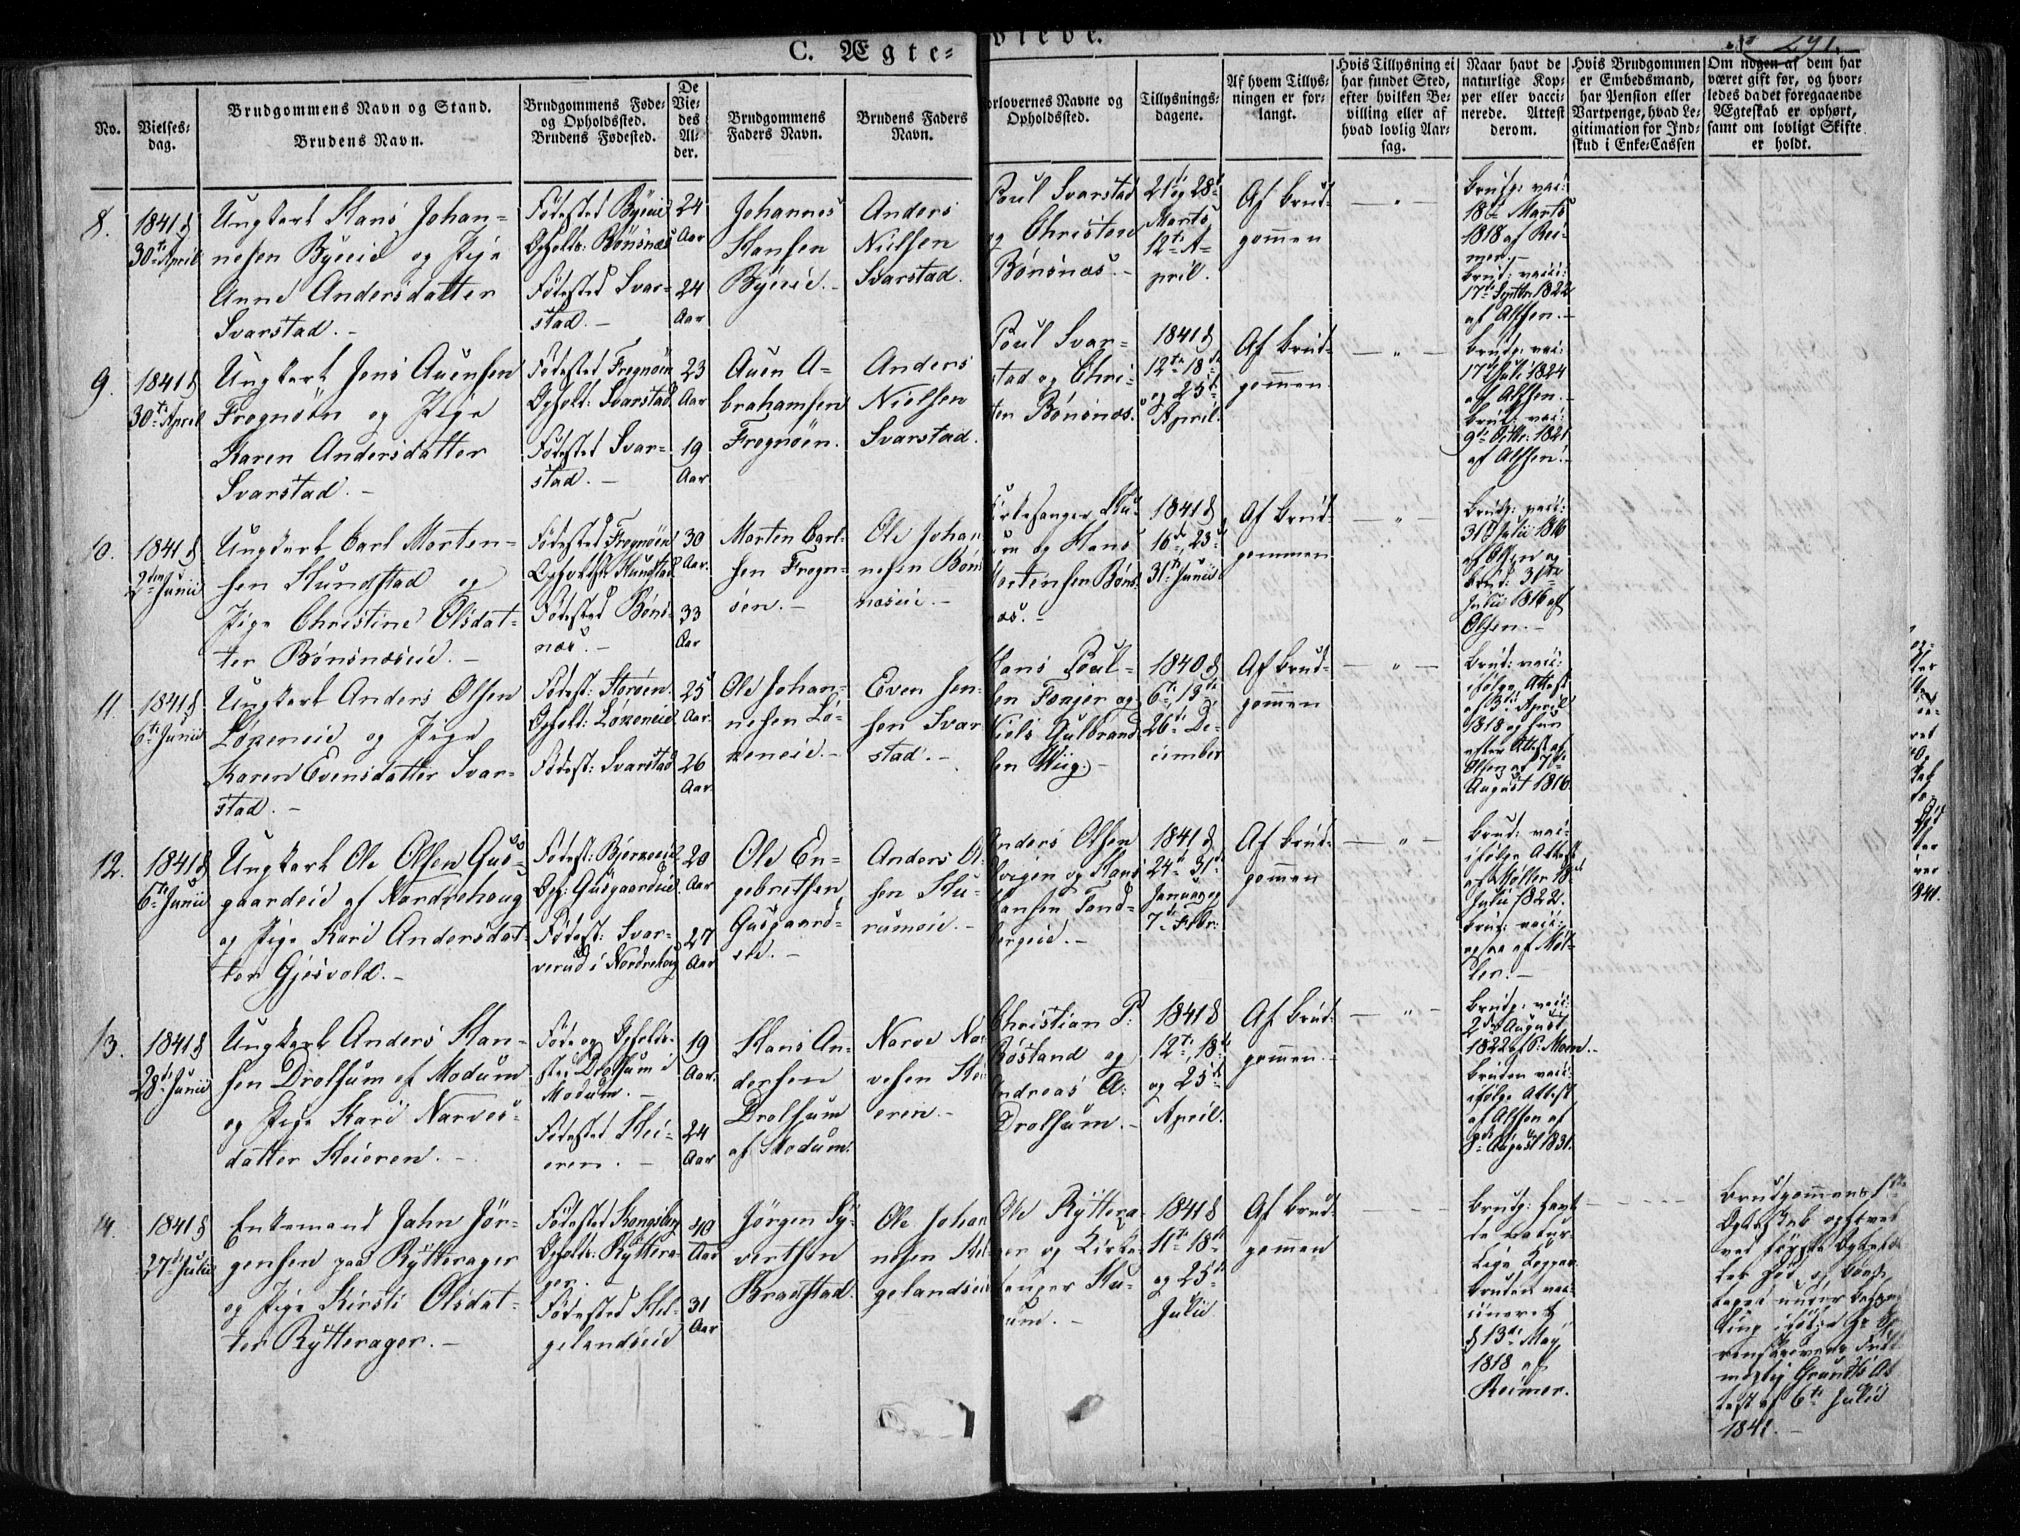 C. Ægte= vieve.
291.
No.
Vielses=
dag.
Brudgommens Navn og Stand.
Brudens Navn.
Brudgommens Føde=
og Opholdssted.
Brudens Fødested.
De
Vie=
des
Al=
der.
Brudgommens
Faders Navn.
Brudens Faders
Navn.
Forlovernes Navne og
Opholdssted.
Tillysnings=
dagene.
Af hvem Tillys=
ningen er for=
langt.
Hvis Tillysning ei
har fundet Sted,
efter hvilken Be=
villing eller af
hvad lovlig Aar=
sag.
Naar havt de
naturlige Kop=
per eller vacci=
nerede. Attest
derom.
Hvis Brudgommen
er Embedsmand,
har Pension eller
Vartpenge, hvad Le=
gitimation for Ind=
skud i Enke=Cassen
Om nogen af dem har
været gift før, og hvor=
ledes da det foregaaende
Ægteskab er ophørt,
samt om lovligt Skifte
er holdt.
8.
1841 d
30te April
Ungkarl Hans Johan=
nesen Byeeie og Pige
Anne Andersdatter
Svarstad. –
Fødested Byeeie
Ophold: Bønsnæs
Fødested Svar=
stad. –
24
Aar
24
Aar
Johannes
Hansen
Byeeie. –
Anders
Nielsen
Svarstad.
Poul Svarstad
og Christen
Bønsnæs. –
21de og 28de
Marts
12te A=
pril.
Af Brud=
gommen
— " —
Brudg: vaci:
18de Marts
1818 af Rei=
mer. –
Brud: vacci:
17de Septbr 1822
af Alsen. –
9.
1841 d
30te April
Ungkarl Jens Auensen
Frognøen og Pige
Karen Andersdatter
Svarstad. –
Fødested Frognøen
Ophold: Svarstad
Fødested Svar=
stad. –
23
Aar
19
Aar
Auen A=
brahamsen
Frognøen.
Anders
Nielsen
Svarstad.
Poul Svar=
stad og Chri=
sten Bønsnæs.
1841 d
12te 18de
og 25de
April.
Af Brud=
gommen.
— " —
Brudg: vaci:
17de Juli 1824
af Alsen. –
Brud: vaci:
9de Octbr: 1821
af Alsen. –
10.
1841 d
2den Junii
Ungkarl Carl Morten=
sen Hundstad og
Pige Christine Olsdat=
ter Bønsnæseie. –
Fødested Frognøen
Ophold: Hundstad
Fødested Bøns=
næs. –
30
Aar.
33
Aar
Morten Carl=
sen Frogn=
øen. –
Ole Johan
nesen Bøns
næseie. –
Kirkesanger Hu=
rum og Hans
Mortensen Bøns
næs. –
1841 d
16de, 23de
31te Junii
Af Brud=
gommen
— " —
Brudg: vaci:
31te Julii 1816
af Olsen og
Brud: 31te
Julii 1816 af
Olsen. –
11.
1841 d
6te Junii
Ungkarl Anders Olsen
Løxeneie og Pige
Karen Evensdatter Svar=
stad. –
Fødest: Storøen
Ophold: Løxeneie
Fødest: Svarstad
25
Aar.
26
Aar.
Ole Johan=
nesen Lø=
xeneie. –
Even Jen=
sen Svar
stad. –
Hans Poul=
sen Fønger og
Niels Gulbrand
sen Wiig. –
1840 d
6te 13de
26de De=
cember
Af Brud=
gommen
— " —
Brud: vaci:
ifølge Attest
af 3de April
1818 og hun
efter Attest af
Olsen af 7de
August 1816.
12.
1841 d
6te Junii
Ungkarl Ole Olsen Gus=
gaardeie af Norderhoug
og Pige Kari Andersdat=
ter Gjesvold. –
Fødest: Bjerkeeie
Oph: Gusgaardeie
Fødest: Svar=
verud i Norderhoug
20
Aar
27
Aar
Ole En=
gebretsen
Gusgaard=
eie. –
Anders Ol
sen Hu=
rumeie. –
Anders Olsen
og Hans
Hansen Tand=
bergeie. –
1841 d
24de 31te
Januar og
7de Febr:
Af Brud=
gommen
— " —
Brud: vaci:
ifølge Attest
af Møller 18de
Julii 1822.
Brud: vaci:
ogsaa af Møl=
ler. –
13.
1841 d
28de Junii
Ungkarl Anders Han=
sen Drolsum af Modum
og Pige Kari Narves=
datter Heieren. –
Føde og Opholds=
sted Drolsum i
Modum. –
Fødested Hei=
eren. –
19
Aar.
24
Aar
Hans An=
dersen
Drolsum
af Modum.
Narve Nar
vesen Hei=
eren. –
Christian P:
Røstand og
Andreas A:
Drolsum. –
1841 d
12te, 18de
og 25de
April.
Af Brud=
gommen. –
— " —
Brudg: vaci:
2den August
1822 af P: Moen. –
Bruden vaci:
ifølge Attest
af Alsen af
3de August 1831.
14.
1841 d
27de Julii
Enkemand Jahn Jør=
gensen paa Rytterager
og Pige Kirsti Olsdat=
ter Rytterager. –
Fødested Kongsberg
Ophold: Ryttera=
ger.
Fødested Hel=
gelandseie
40
Aar
31
Aar
Jørgen Sy=
vertsen
Bradstad.
Ole Johan
nesen Hel=
gelandseie
Ole Ryttera=
ger og Kirke=
sanger Hu=
rum. –
1841 d
11te 18de
og 25de
Julii
Af Brud=
gommen
Brudg: havt
de natur=
lige Kopper
Bruden vac=
cineret
d 13de May
1818 af
Reimer.
Brudgommens 1ste
Ægteskab ophævet
ved
Død og
taget under
ling ifølge
mægtig At
test af 6te Julii
1841. –